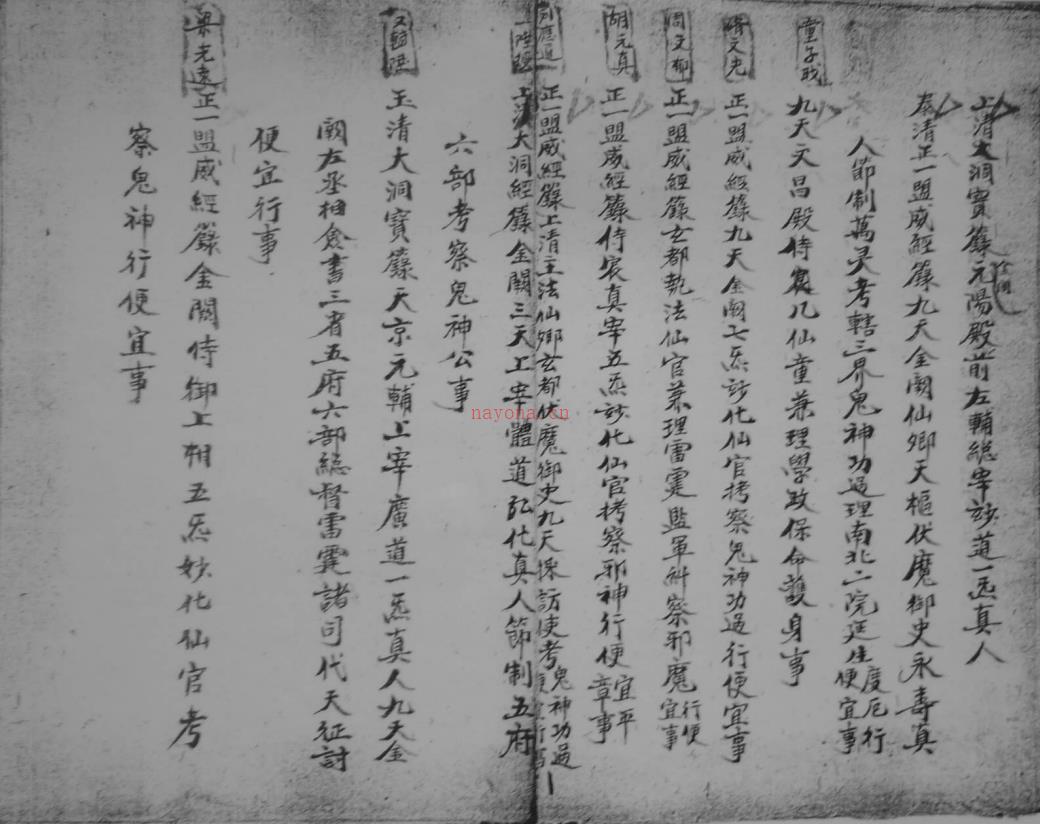 上清大洞寶籙元陽殿前左輔總宰妙道一炁真人
奏清正一盟威經籙九天金闕仙卿天樞伏魔御史永壽真
人節制萬灵考轄三界鬼神功過理南北二院延生度厄行
便宜事
童子我
九天文昌殿侍宸九仙童兼理學政保命護身事
正一盟威經籙九天金闕七炁妙化仙官考察鬼神功過行便宜事
周文郁
正一盟威經籙玄都執法仙官兼理雷霆監軍糾察邪魔行便
宜事
胡元真
正一盟威經籙侍宸真宰五炁妙化仙官考察邪神行便宜平
章事
正一盟威經籙上清主法仙卿玄都伏魔御史九天採訪使考鬼神功過
上清大洞經籙金闕三天上宰體道弘化真人節制五府
六部考察鬼神公事
玉清大洞寶籙天京元輔上宰廣道一炁真人九天金
闕左丞相僉書三省五府六部總督雷霆諸司代天征討
便宜行事
梁光遠
正一盟威經籙金闕侍御上相五炁妙化仙官考
察鬼神行便宜事
nayona.cn